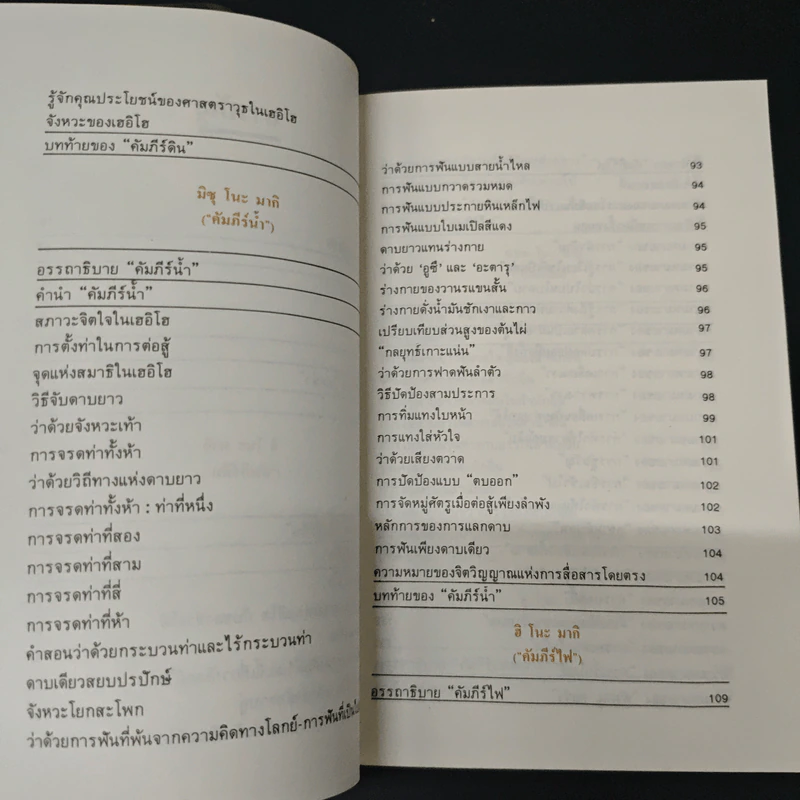 รู้จักคุณประโยชน์ของศาสตราวุธในเฮอิโฮ
จังหวะของเฮอิโฮ
บทท้ายของ "คัมภีร์ดิน"
มิซุ โนะ มากิ
("คัมภีร์น้ำ")
อรรถาธิบาย "คัมภีร์น้ำ"
คำนำ "คัมภีร์น้ำ"
สภาวะจิตใจในเฮอิโฮ
การตั้งท่าในการต่อสู้
จุดแห่งสมาธิในเฮอิโฮ
วิธีจับดาบยาว
ว่าด้วยจังหวะเท้า
การจรดท่าทั้งห้า
ว่าด้วยวิถีทางแห่งดาบยาว
การจรดท่าทั้งห้า : ท่าที่หนึ่ง
การจรดท่าที่สอง
การจรดท่าที่สาม
การจรดท่าที่สี่
การจรดท่าที่ห้า
คำสอนว่าด้วยกระบวนท่าและไร้กระบวนท่า
ดาบเดียวสยบปรปักษ์
จังหวะโยกสะโพก
ว่าด้วยการฟันที่พ้นจากความคิดทางโลกย์-การฟันที่เป็น
ว่าด้วยการฟันแบบสายน้ำไหล 93
การฟันแบบกวาดรวมหมด 94
การฟันแบบประกายหินเหล็กไฟ 94
การฟันแบบใบเมเปิลสีแดง 95
ดาบยาวแทนร่างกาย 95
ว่าด้วย 'อูชี' และ 'อะตารุ' 95
ร่างกายของวานรแขนสั้น 96
ร่างกายดั่งน้ำมันชักเงาและกาว 96
เปรียบเทียบส่วนสูงของต้นไผ่ 97
"กลยุทธ์เกาะแน่น" 97
ว่าด้วยการฟาดฟันลำตัว 98
วิธีปัดป้องสามประการ 98
การทิ่มแทงใบหน้า 99
การแทงใส่หัวใจ 101
ว่าด้วยเสียงตวาด 101
การปัดป้องแบบ "ตบออก" 102
การจัดหมู่ศัตรูเมื่อต่อสู้เพียงลำพัง 102
หลักการของการแลกดาบ 103
การฟันเพียงดาบเดียว 104
ความหมายของจิตวิญญาณแห่งการสื่อสารโดยตรง 104
บทท้ายของ "คัมภีร์น้ำ" 105
ฮิ โนะ มากิ
("คัมภีร์ไฟ")
อรรถาธิบาย "คัมภีร์ไฟ" 109